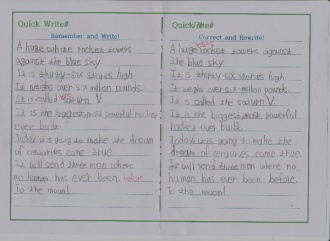 Quick Write#
Remember and Write!
A huge white rocket towers
against the blue sky.
It is thirty-six stories high.
It weighs over six million pounds.
It is called Saturn V.
It is the biggest, most powerful rocket
ever built.
Today is going to make the dream
of centuries come true.
It will send three men where
no human has ever been before.
To the moon!
Quick Write#
Correct and Rewrite!
A huge rocket towers against
the blue sky.
It is thirty-six stories high.
It weighs over six million pounds.
It is called the Saturn V.
It is the biggest, most powerful
rocket ever built.
Today is going to make the
dream of centuries come true.
It will send three men where no
human has ever been before.
To the moon!